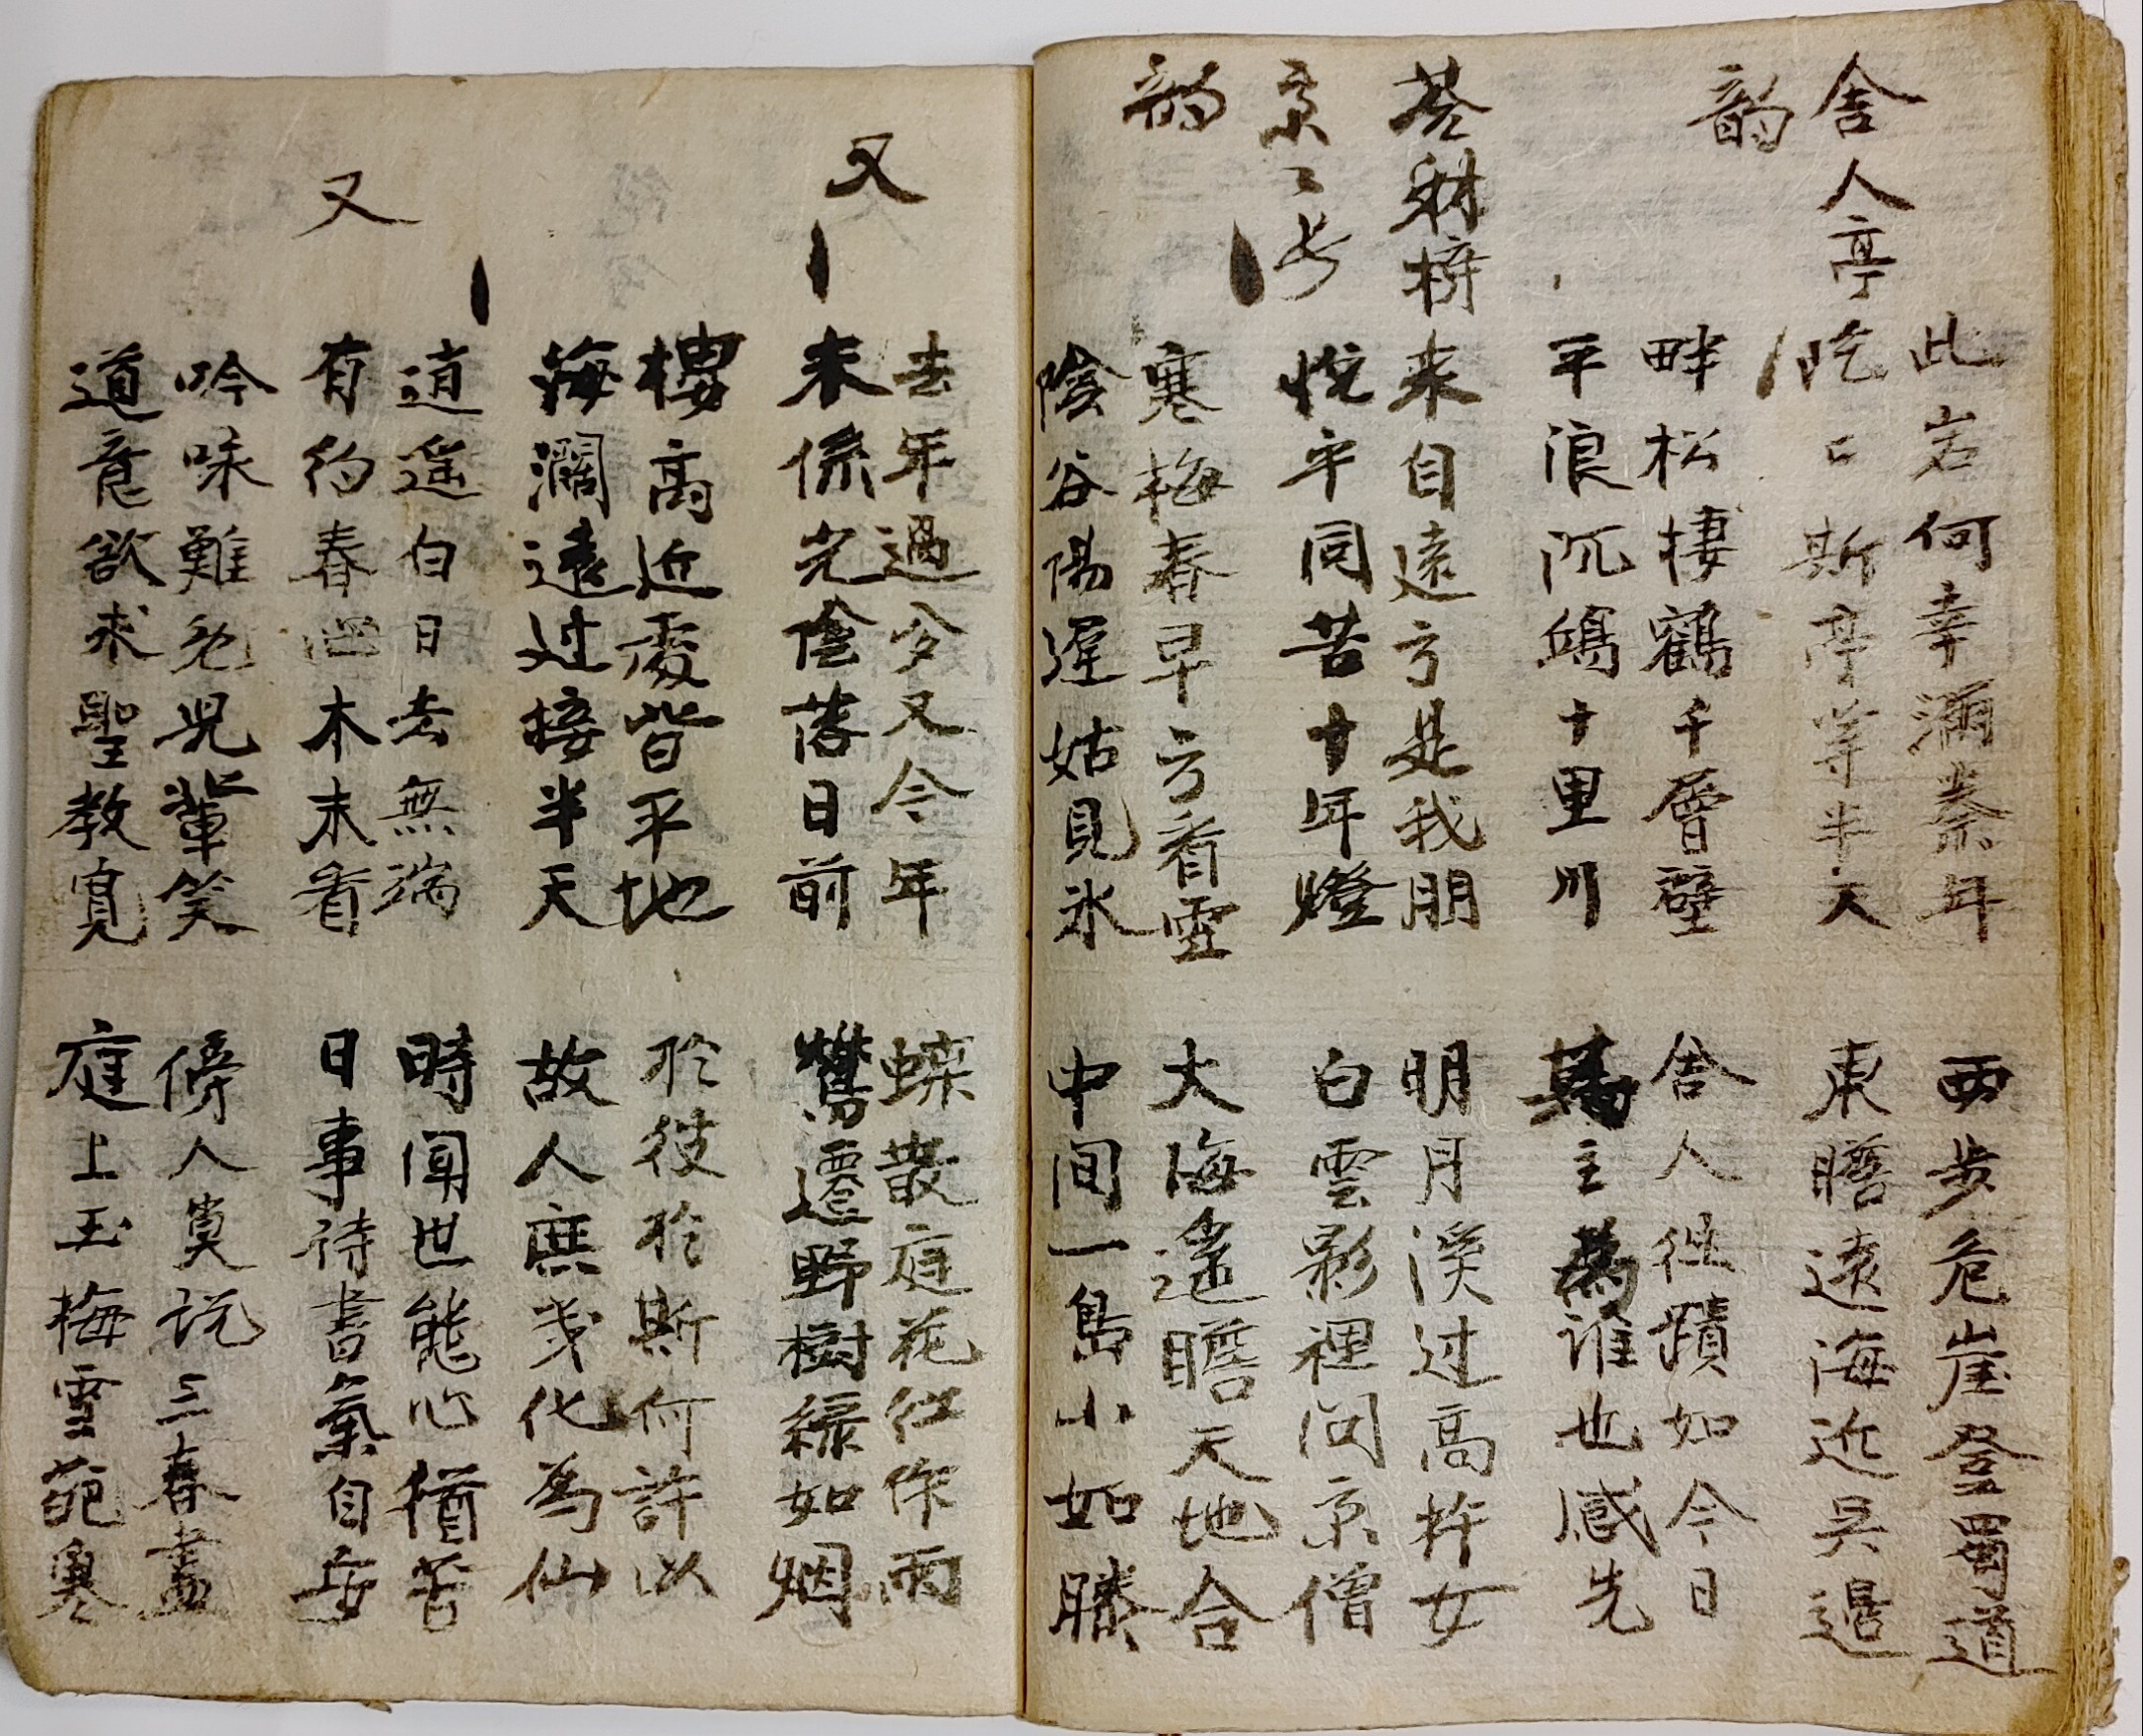 此岩何幸滿秦年
西步危崖登蜀道
舍人亭
屹〻斯亭等半天
東瞻遠海近吳邊
韵
畔松棲鶴千層壁
舍人往蹟如今日
平浪沉鴻十里川
主為誰也感先
来自遠方是我朋
明月溪过高杵女
悅乎同苦十年燈
白雲影裡问京僧
韵
寒梅春早方看雪
大海遙瞻天地合
陰谷陽遲姑見氷
中间一島小如
又
去年過多又今年
蝶散庭花红作雨
来係光陰落日前
鶯遷野樹綠如烟
樓高近處皆平地
於彼於斯何許以
海濶遠过接半天
故人庶幾化為仙
又
逍遥白日去無端
時闻世態心猶苦
有約春山本末看
日事待書氣自安
吟味難免兒輩笑
傍人莫说三春盡
道意欲求聖教寬
庭上玉梅雪葩寒